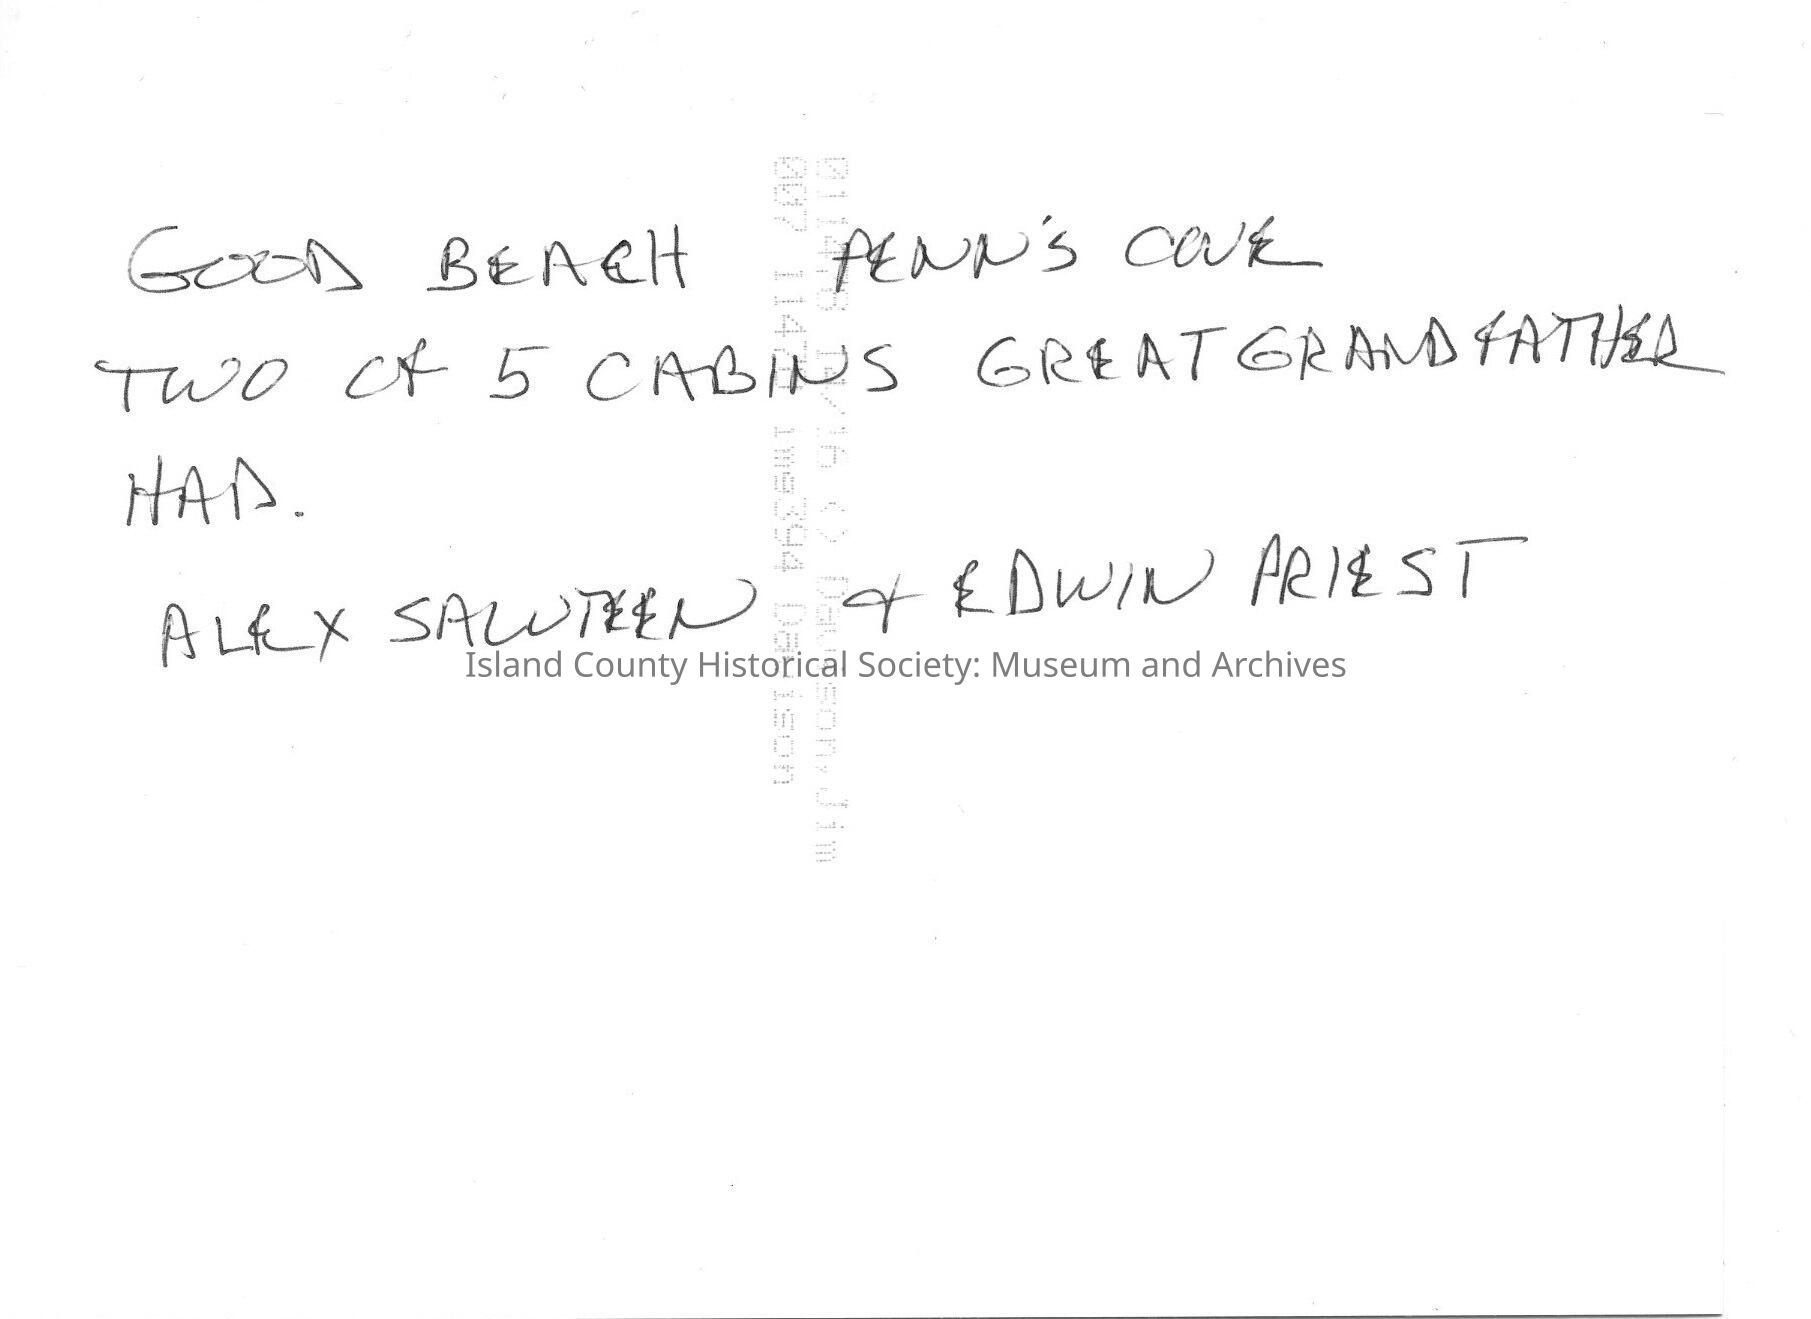 GOOD BEACH PENN'S COVE
TWO OF 5 CABINS GREAT GRANDFATHER
HAD.
ALEX & EDWIN PRIEST
Island County Historical Society: Museum and Archives